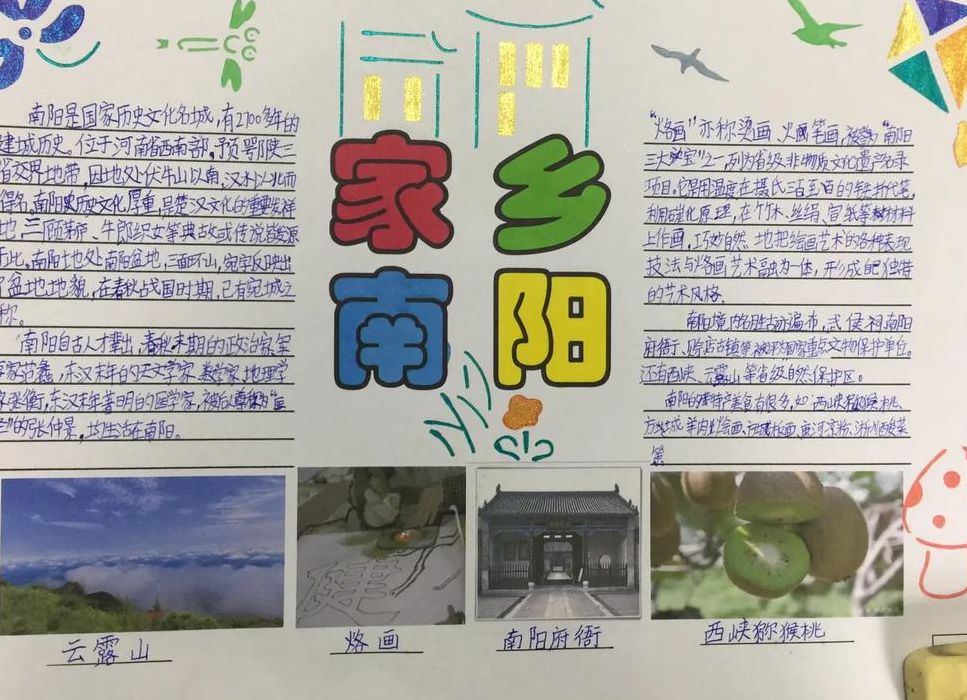 南阳是国家历史文化名城，有2700多年的
建城历史。位于河南省西南部，豫鄂陕三
省交界地带，因地处伏牛山以南，汉水以北而
得名。南阳历史文化厚重，是楚汉文化的重要发祥
地，三顾茅庐、牛郎织女等典故或传说皆发源
于此。南阳地处南阳盆地，三面环山，宛字反映出
了盆地地貌，在春秋战国时期，已有宛城之
称。
南阳自古人才辈出，春秋末期的政治家、军
事家范蠡，东汉末年的天文学家、数学家、地理学
家张衡，东汉末年著明的医学家，被后人尊称为"医
圣"的张仲景，均生活在南阳。
家乡
南阳
"烙画"亦称烫画、火画笔画，被誉为"南阳
三大宝"之一，列为省级非物质文化遗产名录
项目。它是用温度在摄氏三百至百的铁扦代笔，
利用碳化原理，在竹木、丝绢、宣纸等材料
上作画，巧妙自然地把绘画艺术的各种表现
技法与烙画艺术融为一体，形成独特
的艺术风格。
南阳境内名胜古迹遍布，武侯祠南阳
府衙、赊店古镇等被评为国家重点文物保护单位。
还有西峡、云露山等省级自然保护区。
南阳的特产美食有很多，如：西峡猕猴桃、
方城羊肉烩面、板面、凉粉、浙川酸菜
等
云露山
烙画
南阳府衙
西峡猕猴桃